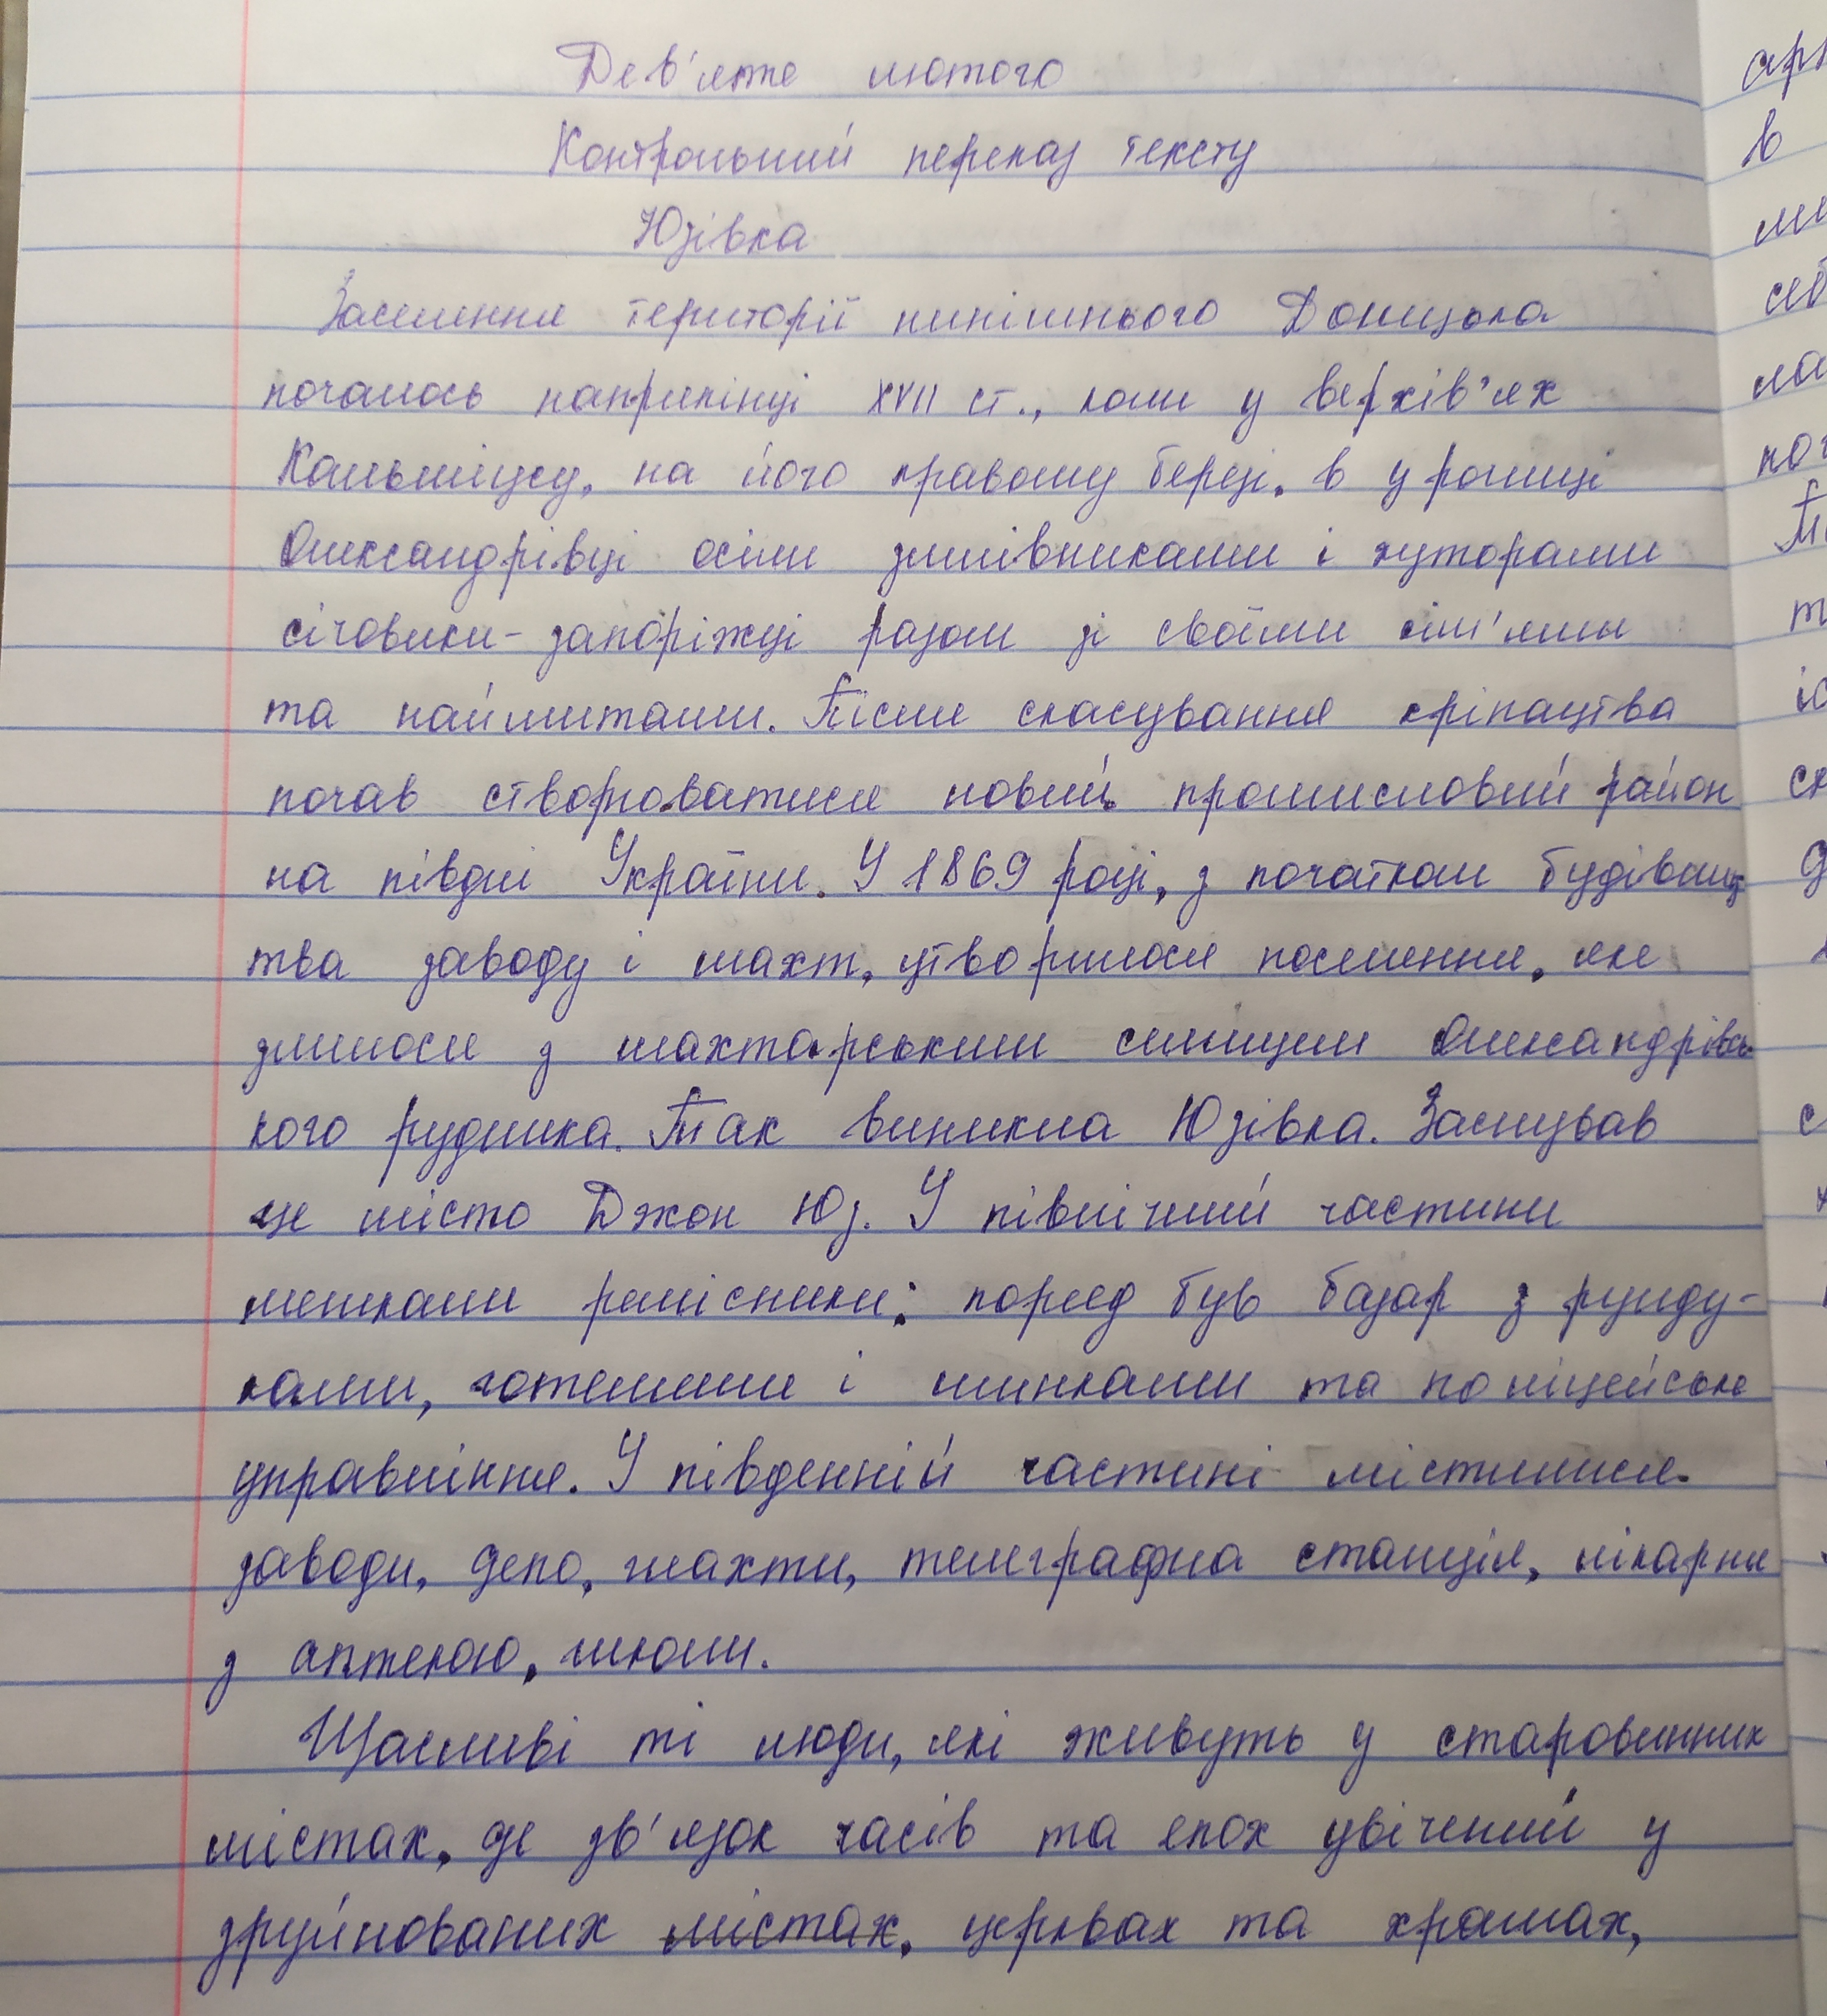 Дев'яте лютого
Контрольний переказ тексту
Юзівка
Заселення території нинішнього Донецька
почалось наприкінці XVII ст., коли у верхів'ях
Кальміусу, на його правому березі, в урочищі
Олександрівці осіли зимівниками і хуторами
січовики-запоріжці разом зі своїми сім'ями
та наймитами. Після скасування кріпацтва
почав створюватися новий промисловий район
на півдні України. У 1869 році, з початком будівниц
тва заводу і шахт, утворилося поселення, яке
злилося з шахтарським селищем Олександрівсь
кого рудника. Так виникла Юзівка. Заснував
це місто Джон Юз. У північний частини
мешкали ремісники; поряд був базар з рунду-
ками, готелями і шинками та поліцейське
управління. У південній частині містилися
заводи, депо, шахти, телеграфна станція, лікарня
з аптекою, школи.
Щасливі ті люди, які живуть у старовинних
містах, де зв'язок часів та епох увічений у
зруйнованих містах, церквах та храмах,
в